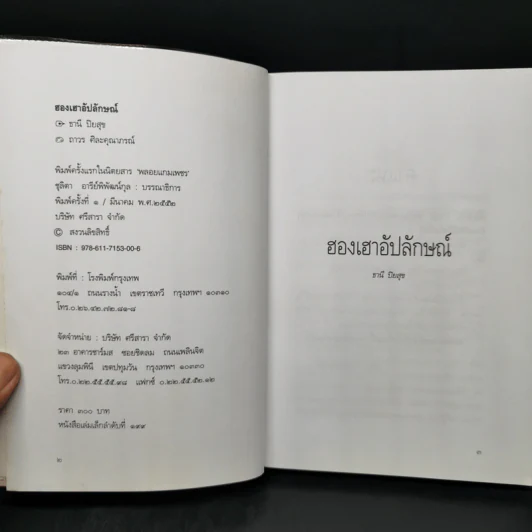 ฮองเฮาอัปลักษณ์
ธานี ปิยสุข
ถาวร ศิละคุณาภรณ์
พิมพ์ครั้งแรกในนิตยสาร 'พลอยแกมเพชร'
ชุลิตา อารีย์พิพัฒน์กุล : บรรณาธิการ
พิมพ์ครั้งที่ ๑ / มีนาคม พ.ศ.๒๕๕๒
บริษัท ศรีสารา จำกัด
© สงวนลิขสิทธิ์
ISBN : 978-611-7153-00-6
พิมพ์ที่ : โรงพิมพ์กรุงเทพ
๑๐๔/๑ ถนนรางน้ำ เขตราชเทวี กรุงเทพฯ ๑๐๓๑๐
โทร.๐.๒๖.๔๒.๗๒.๘๑-๘
จัดจำหน่าย : บริษัท ศรีสารา จำกัด
๒๓ อาคารชาร์มส ซอยชิดลม ถนนเพลินจิต
แขวงลุมพินี เขตปทุมวัน กรุงเทพฯ ๑๐๓๓๐
โทร.๐.๒๒.๕๕.๕๕.๙๘ แฟกซ์ ๐.๒๒.๕๕.๕๒.๑๒
ราคา ๓๐๐ บาท
หนังสือเล่มเล็กลำดับที่ ๑๙๙
๒
ฮองเฮาอัปลักษณ์
ธานี ปิยสุข
๓